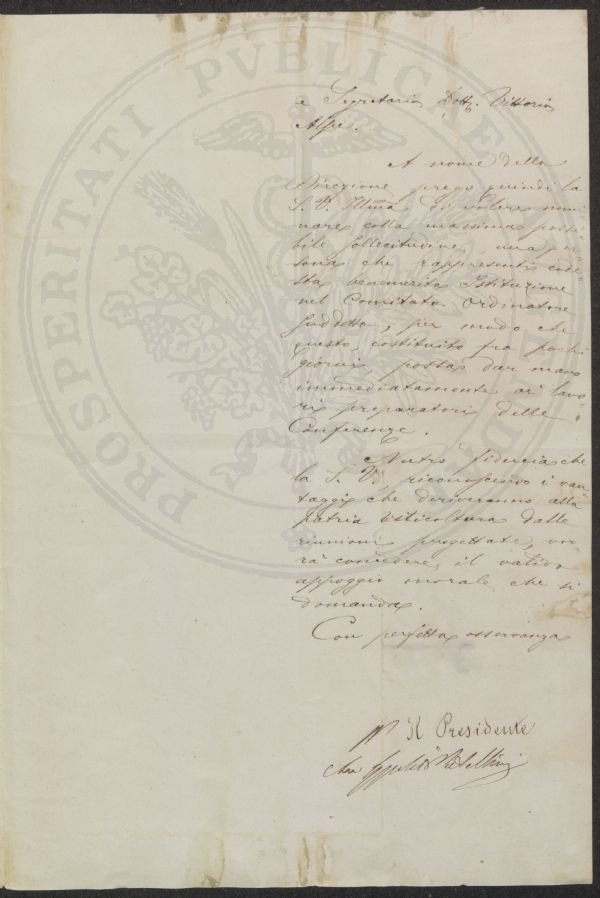 PROSPERITATI PUBLICAE
e Segretario Dott. Vittorio
Alpe.
A nome della
Direzione prego quindi la
S. V. Illma di volere nomi
nare colla massima possi
bile sollecitudine, una per
sona che rappresenti code
sta benemerita Istituzione
nel Comitato Ordinatore
suddetto, per modo che
questo, costituito fra pochi
giorni, possa dar mano
immediatamente ai lavo-
ri preparatori delle
Conferenze.
Nutro fiducia che
la S. V. riconoscendo i van
taggi che deriveranno alla
patria viticoltura dalle
riunioni progettate, vor
rà concedere il valido
appoggio morale che si
domanda.
Con perfetta osservanza
Il Presidente